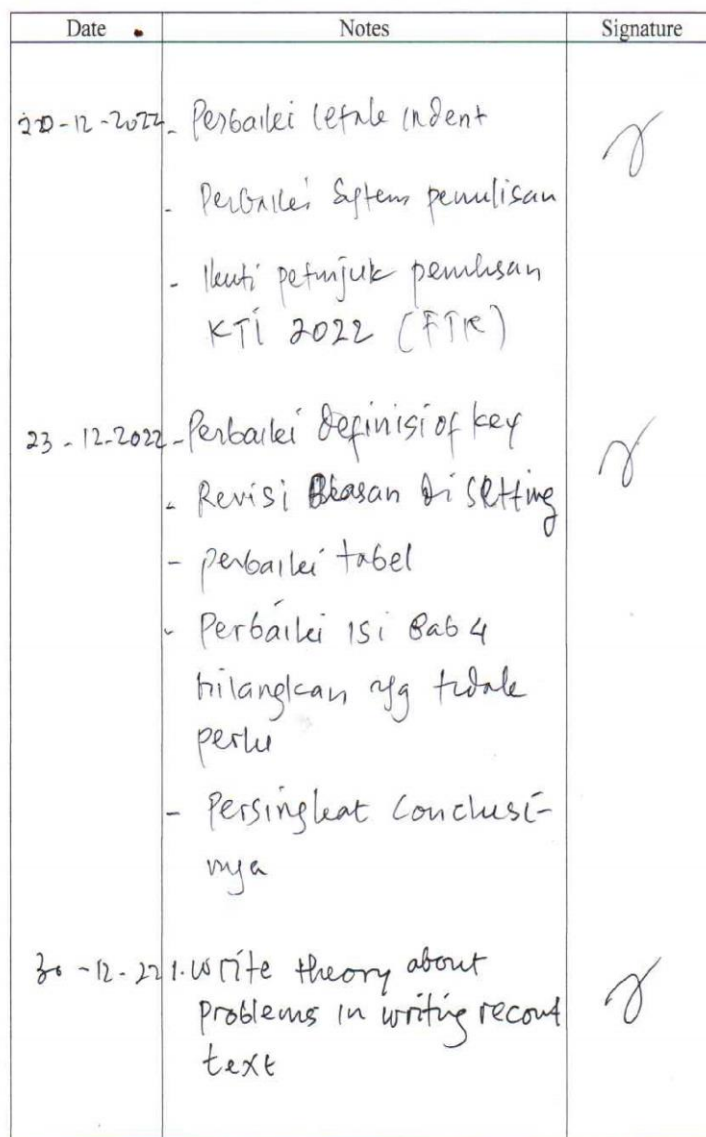 Date Notes Signature
20-12-2022 - Perbaiki letak indent
- Perbaiki System penulisan
- Ikuti petunjuk penulisan
KTI 2022 (FTK)
23-12-2022 - Perbaiki Definisi of key
- Revisi Alasan di Setting
- perbaiki tabel
- Perbaiki isi Bab 4
hilangkan yg tidak
perlu
- Persingkat Conclusi-
nya
30-12-22 1. Write theory about
problems in writing recount
text